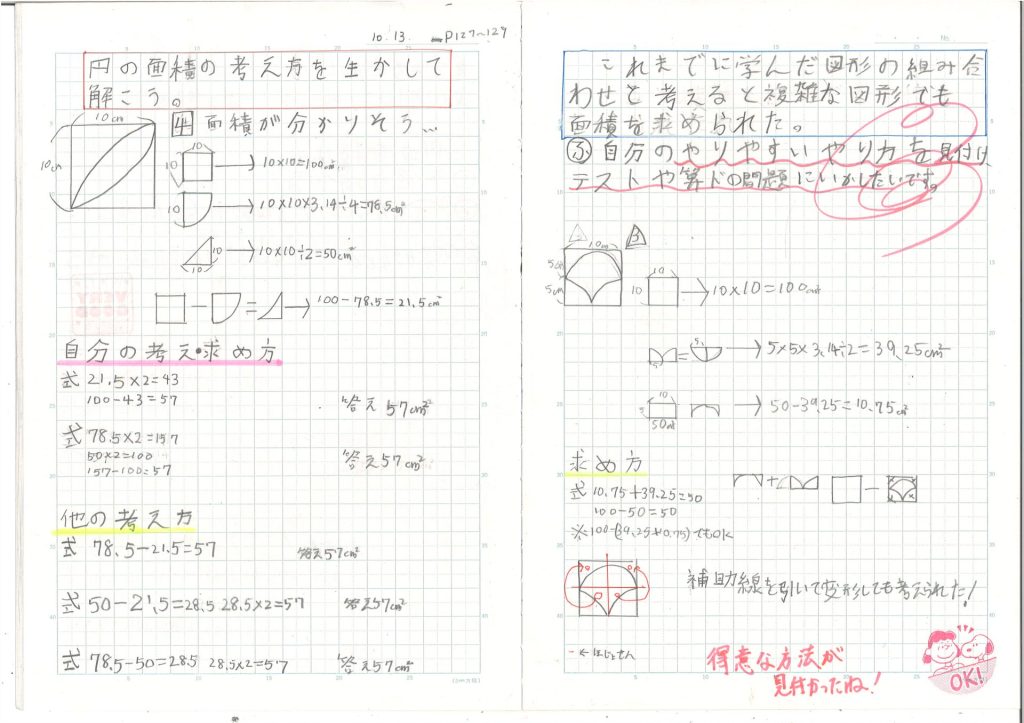 10.13 P127~129
円の面積の考え方を生かして
解こう。
10cm
10cm
4 面積が分かりそう…
10
10
10×10=100cm²
10
10×10×3.14÷4=78.5cm²
10
10
10×10÷2=50cm²
－ ＝ → 100-78.5=21.5cm²
自分の考え・求め方
式 21.5×2=43
100-43=57
答え57cm²
式 78.5×2=157
50×2=100
157-100=57
答え57cm²
他の考え方
式 78.5-21.5=57 答え57cm²
式 50-21.5=28.5 28.5×2=57 答え57cm²
式 78.5-50=28.5 28.5×2=57 答え57cm²
No.
これまでに学んだ図形の組み合
わせと考えると複雑な図形でも
面積を求められた。
ふ 自分のやりやすいやり方を見付け、
テストや算ドの問題にいかしたいです。
3
10cm
5cm
5cm
10
10
10×10=100cm²
= 5 → 5×5×3.14÷2=39.25cm²
10
5
50cm²
50-39.25=10.75cm²
求め方
式 10.75+39.25=50
100-50=50
※100-(39.25+10.75)でもOK
補助線を引いて変形しても考えられた!
-←ほじょせん
得意な方法が
見付かったね!
OK!
VERY
GOOD